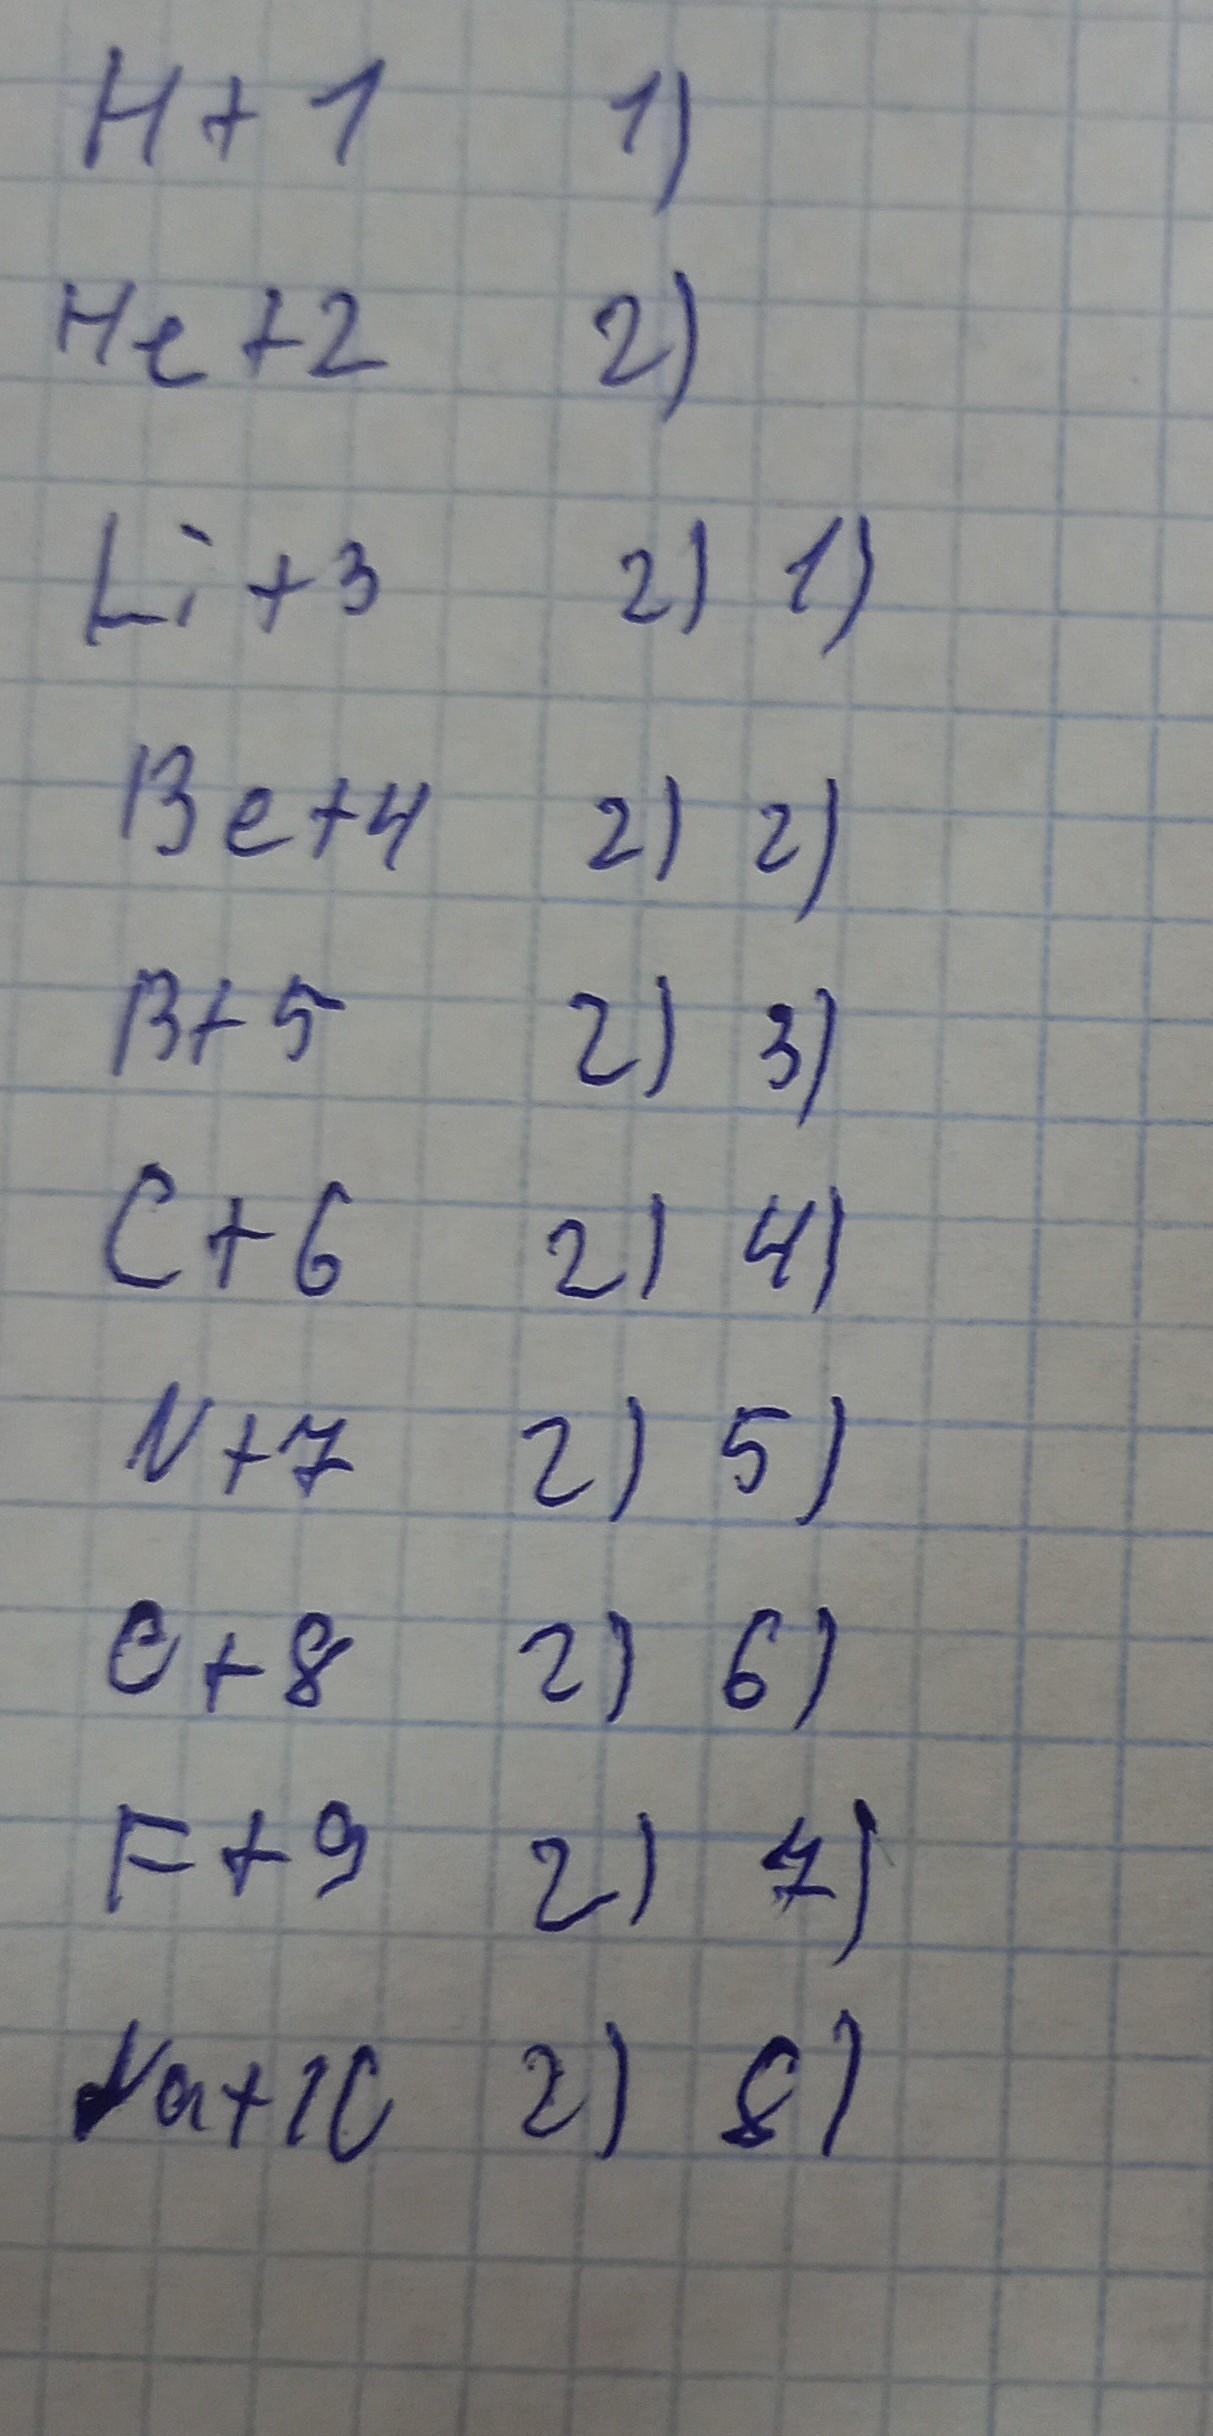 H+1 1)
He+2 2)
Li+3 2) 1)
Be+4 2) 2)
B+5 2) 3)
C+6 2) 4)
N+7 2) 5)
O+8 2) 6)
F+9 2) 7)
Na+10 2) 8)